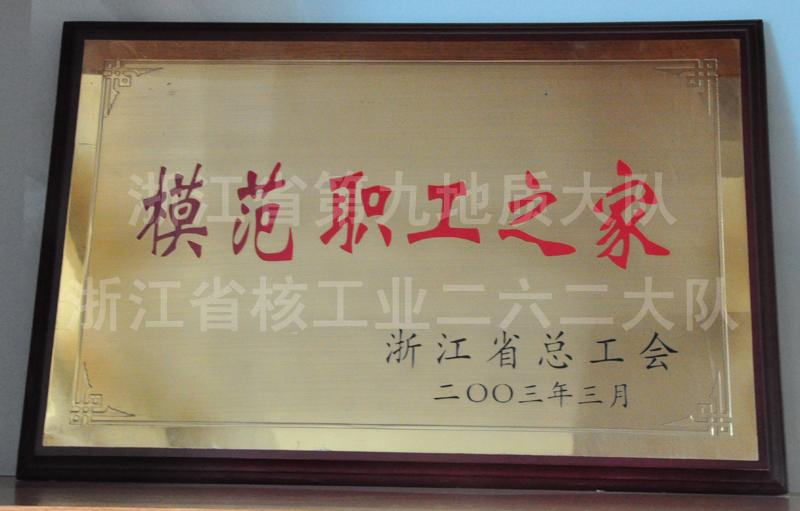 浙江省第九地质大队
模范职工之家
浙江省核工业二六二大队
浙江省总工会
二〇〇三年三月